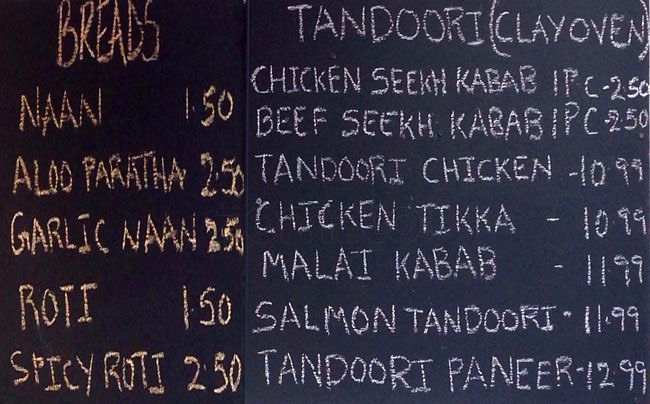 BREADS
NAAN 1.50
ALOO PARATHA 2.50
GARLIC NAAN 2.50
ROTI 1.50
SPICY ROTI 2.50
TANDOORI (CLAY OVEN)
CHICKEN SEEKH KABAB 1PC-2.50
BEEF SEEKH KABAB 1PC-2.50
TANDOORI CHICKEN -10.99
CHICKEN TIKKA - 10.99
MALAI KABAB - 11.99
SALMON TANDOORI - 11.99
TANDOORI PANEER-12.99